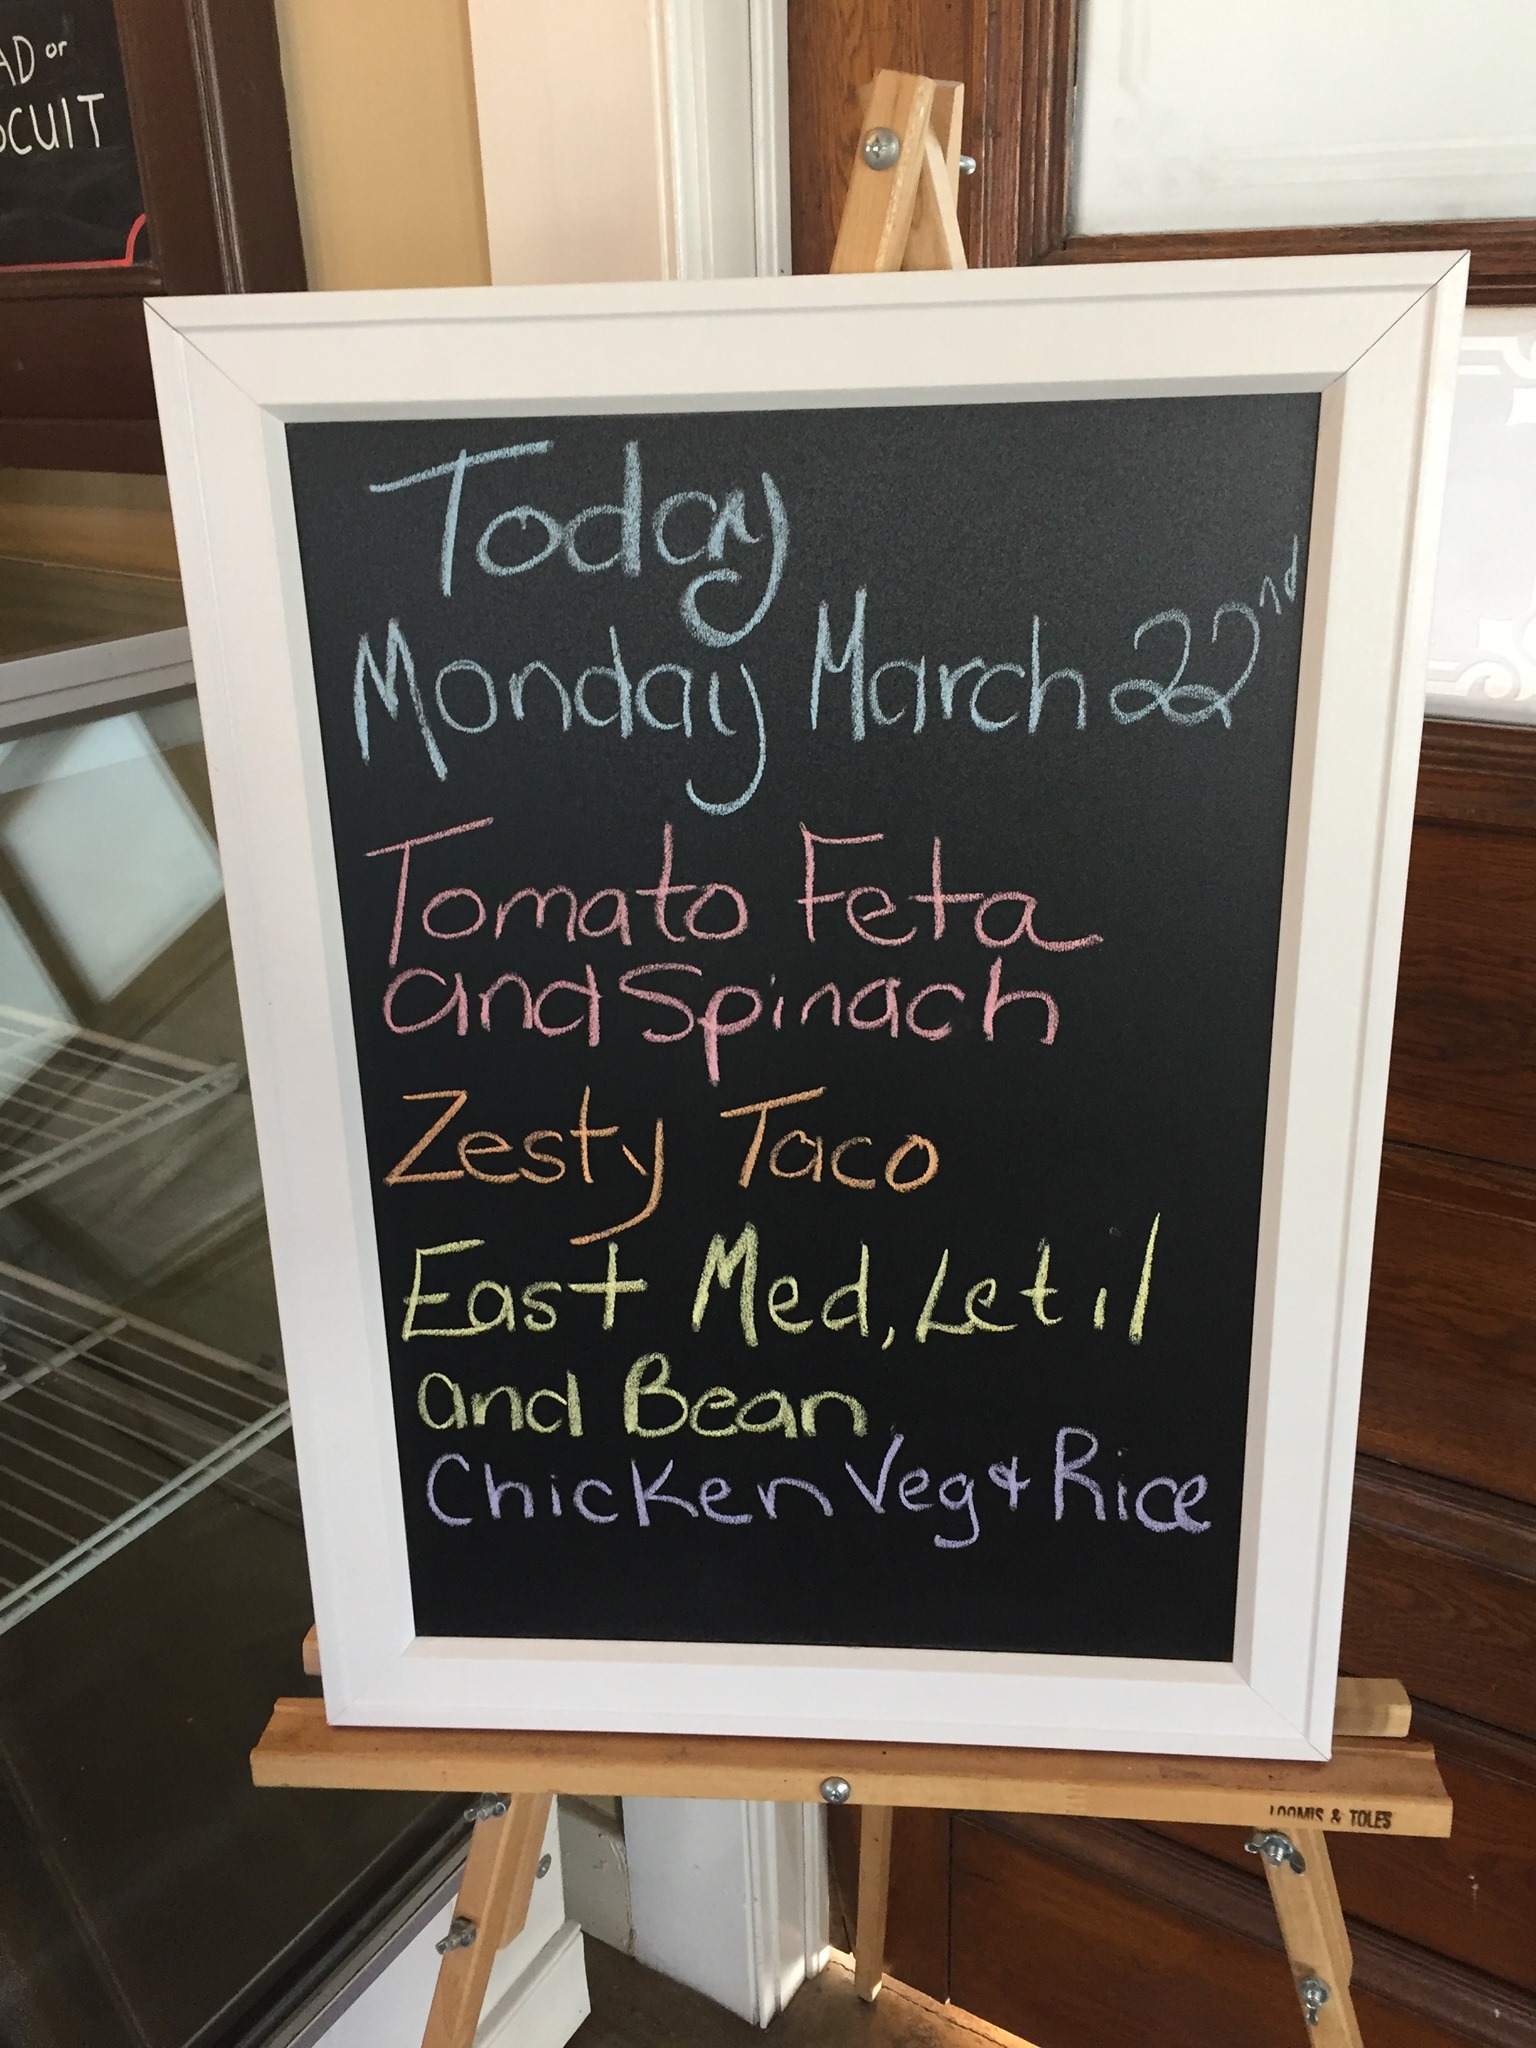 AD or
Today
Monday March 22nd
Tomato Feta
and Spinach
Zesty Taco
East Med, Letil
and Bean
Chicken Veg & Rice
LOOMIS & TOLES